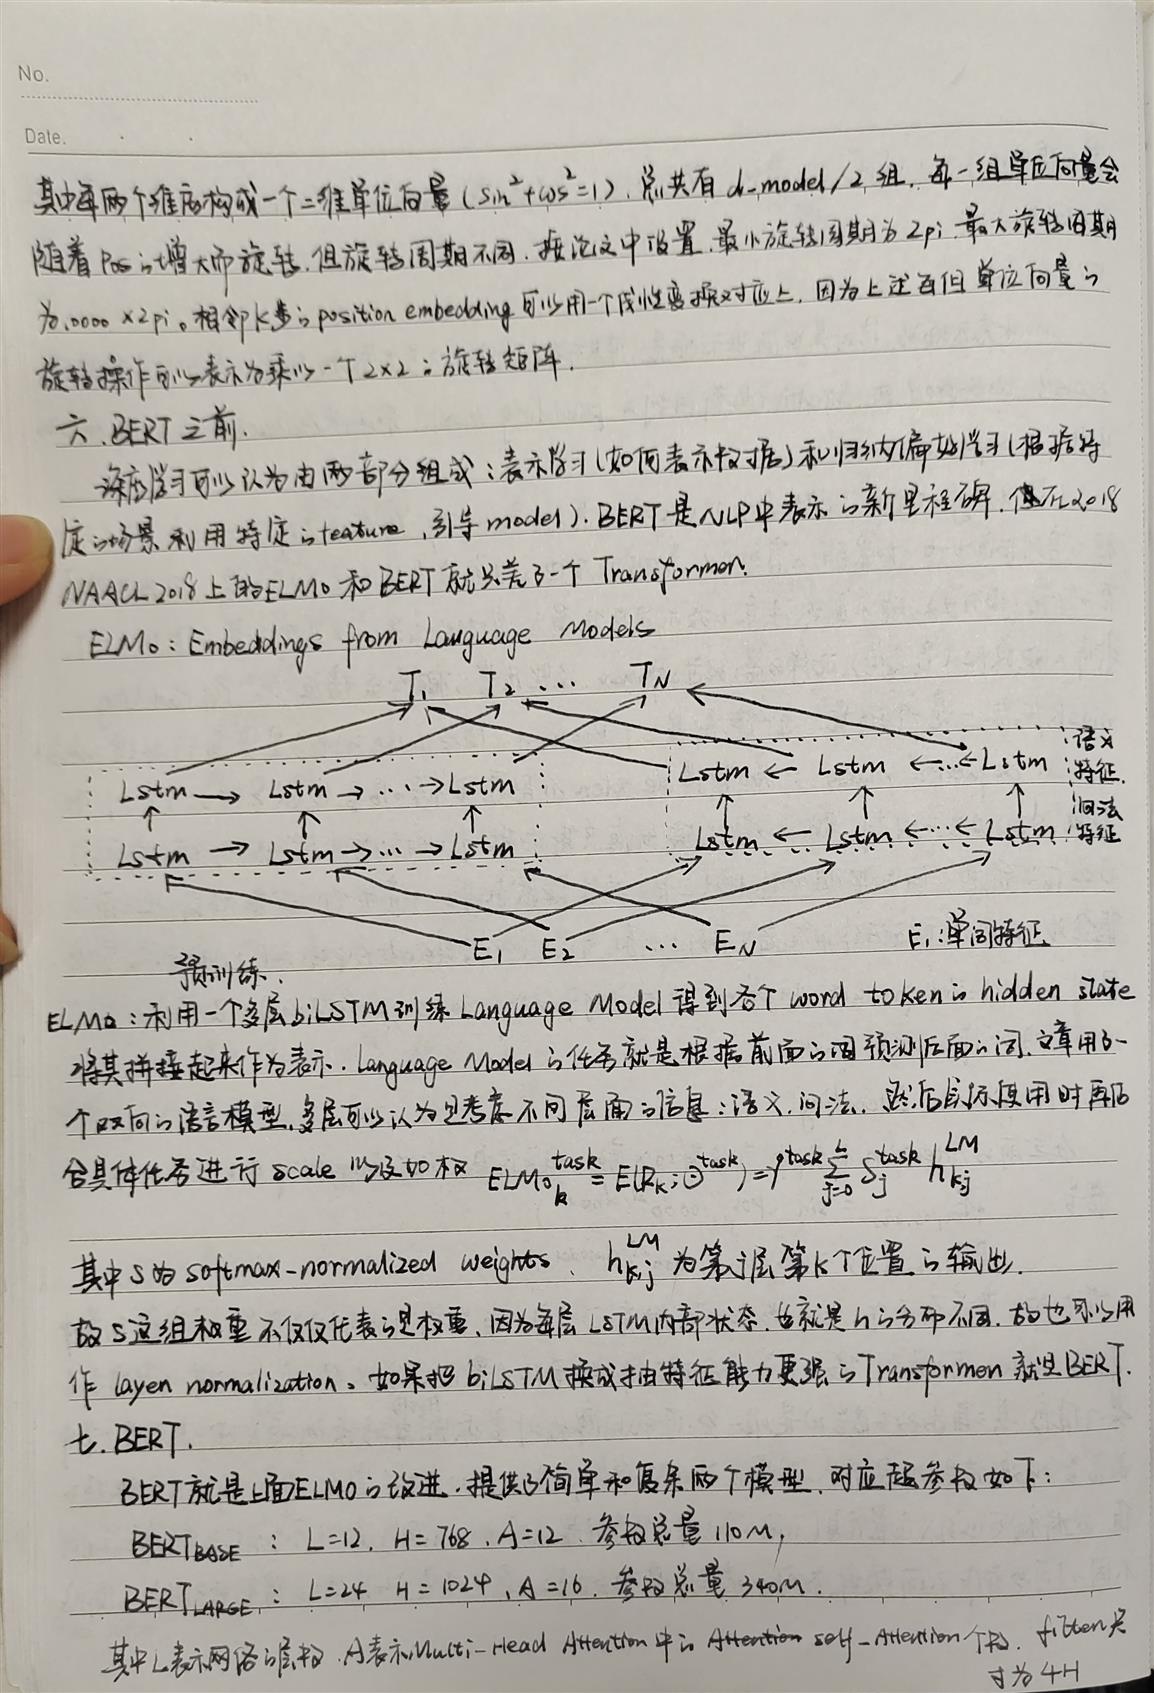 No.
Date.
其中每两个维度构成一个二维单位向量(sin²+cos²=1).总共有 d_model/2 组.每一组单位向量会
随着 Pos 的增大而旋转.但旋转周期不同.按论文中设置.最小旋转周期为 2pi.最大旋转周期
为10000 ×2pi。相邻K步的position embedding可以用一个线性变换对应上.因为上述每组单位向量的
旋转操作可以表示为乘以一个2×2的旋转矩阵.
六.BERT之前.
深度学习可以认为由两部分组成:表示学习(如何表示数据)和归纳偏好学习(根据特
定的场景利用特定的feature,引导model).BERT是NLP中表示的新里程碑.但在2018
NAACL2018上的ELMo和BERT就只差了一个 Transformer.
ELMo: Embeddings from Language Models
T1 T2 ... TN
Lstm → Lstm → ... → Lstm Lstm ← Lstm ← ... ← Lstm 语义特征.
Lstm → Lstm → ... → Lstm Lstm ← Lstm ← ... ← Lstm 词法特征
E1 E2 ... EN E1:单词特征.
预训练.
ELMo:利用一个多层biLSTM训练Language Model得到各个word token的hidden state
将其拼接起来作为表示.Language Model的任务就是根据前面的词预测后面的词.文章用了一
个双向的语言模型.多层可以认为是考虑不同层面的信息:语义.词法.然后实际使用时再结
合具体任务进行scale以及加权 ELMo_k^task = E(R_k;Θ^task) = γ^task Σ_{j=0}^L S_j^task h_{k,j}^LM
其中S为softmax-normalized weights. h_{k,j}^LM 为第j层第k个位置的输出.
故S这组权重不仅仅代表的是权重.因为每层LSTM内部状态.也就是h的分布不同.故也可以用
作 layer normalization。如果把biLSTM换成抽特征能力更强的Transformer就是BERT.
七.BERT.
BERT就是上面ELMO的改进.提供了简单和复杂两个模型.对应超参数如下:
BERT_BASE : L=12. H=768. A=12. 参数总量 110M,
BERT_LARGE : L=24 H=1024. A=16. 参数总量 340M.
其中L表示网络的层数.A表示Multi-Head Attention中的 Attention self-Attention个数. filter尺
寸为4H